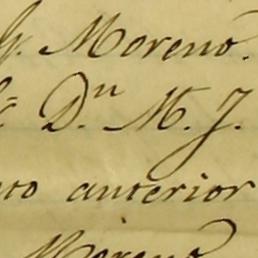 G. Moreno.
Dn M. J.
anterior
Moreno